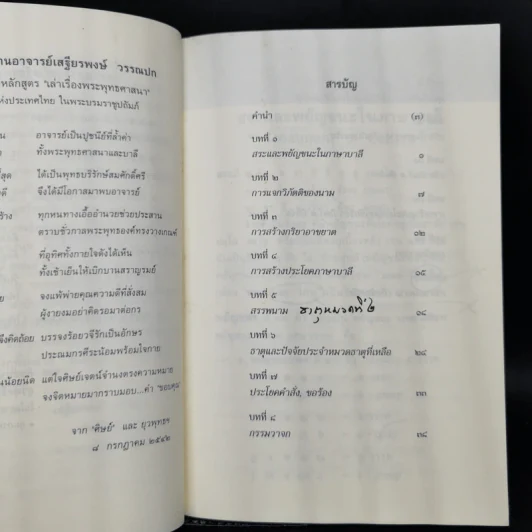 านอาจารย์เสฐียรพงษ์ วรรณปก
หลักสูตร "เล่าเรื่องพระพุทธศาสนา"
ห่งประเทศไทย ในพระบรมราชูปถัมภ์
น อาจารย์เป็นปูชนีย์ที่ล้ำค่า
ทั้งพระพุทธศาสนาและบาลี
ที่สุด ได้เป็นพุทธบริรักษ์สมศักดิ์ศรี
ดี จึงได้มีโอกาสมาพบอาจารย์
ร้าง ทุกหนทางเอื้ออำนวยช่วยประสาน
ตราบชั่วกาลพระพุทธองค์ทรงวางเกณฑ์
ที่อุทิศทั้งกายใจดังได้เห็น
ทั้งเช้าเย็นให้เบิกบานสราญรมย์
จงแพ้พ่ายคุณความดีที่สั่งสม
ผู้งายงมอย่าคิดรอมาต่อกร
จึงคิดถ้อย บรรจงร้อยวจีรักเป็นอักษร
ประณมกรศิระน้อมพร้อมใจกาย
นน้อยนิด แต่ใจศิษย์เจตน์จำนงตรงความหมาย
จงจิตหมายมากราบมอบ...คำ "ขอบคุณ"
จาก "ศิษย์" และ ยุวพุทธฯ
๘ กรกฎาคม ๒๕๔๒
สารบัญ
คำนำ (๓)
บทที่ ๑
สระและพยัญชนะในภาษาบาลี ๑
บทที่ ๒
การแจกวิภัตติของนาม ๗
บทที่ ๓
การสร้างกริยาอาขยาต ๑๒
บทที่ ๔
การสร้างประโยคภาษาบาลี ๑๕
บทที่ ๕
สรรพนาม ธาตุหมวดที่ ๒ ๑๘
บทที่ ๖
ธาตุและปัจจัยประจำหมวดธาตุที่เหลือ ๒๔
บทที่ ๗
ประโยคคำสั่ง, ขอร้อง ๓๓
บทที่ ๘
กรรมวาจก ๓๘